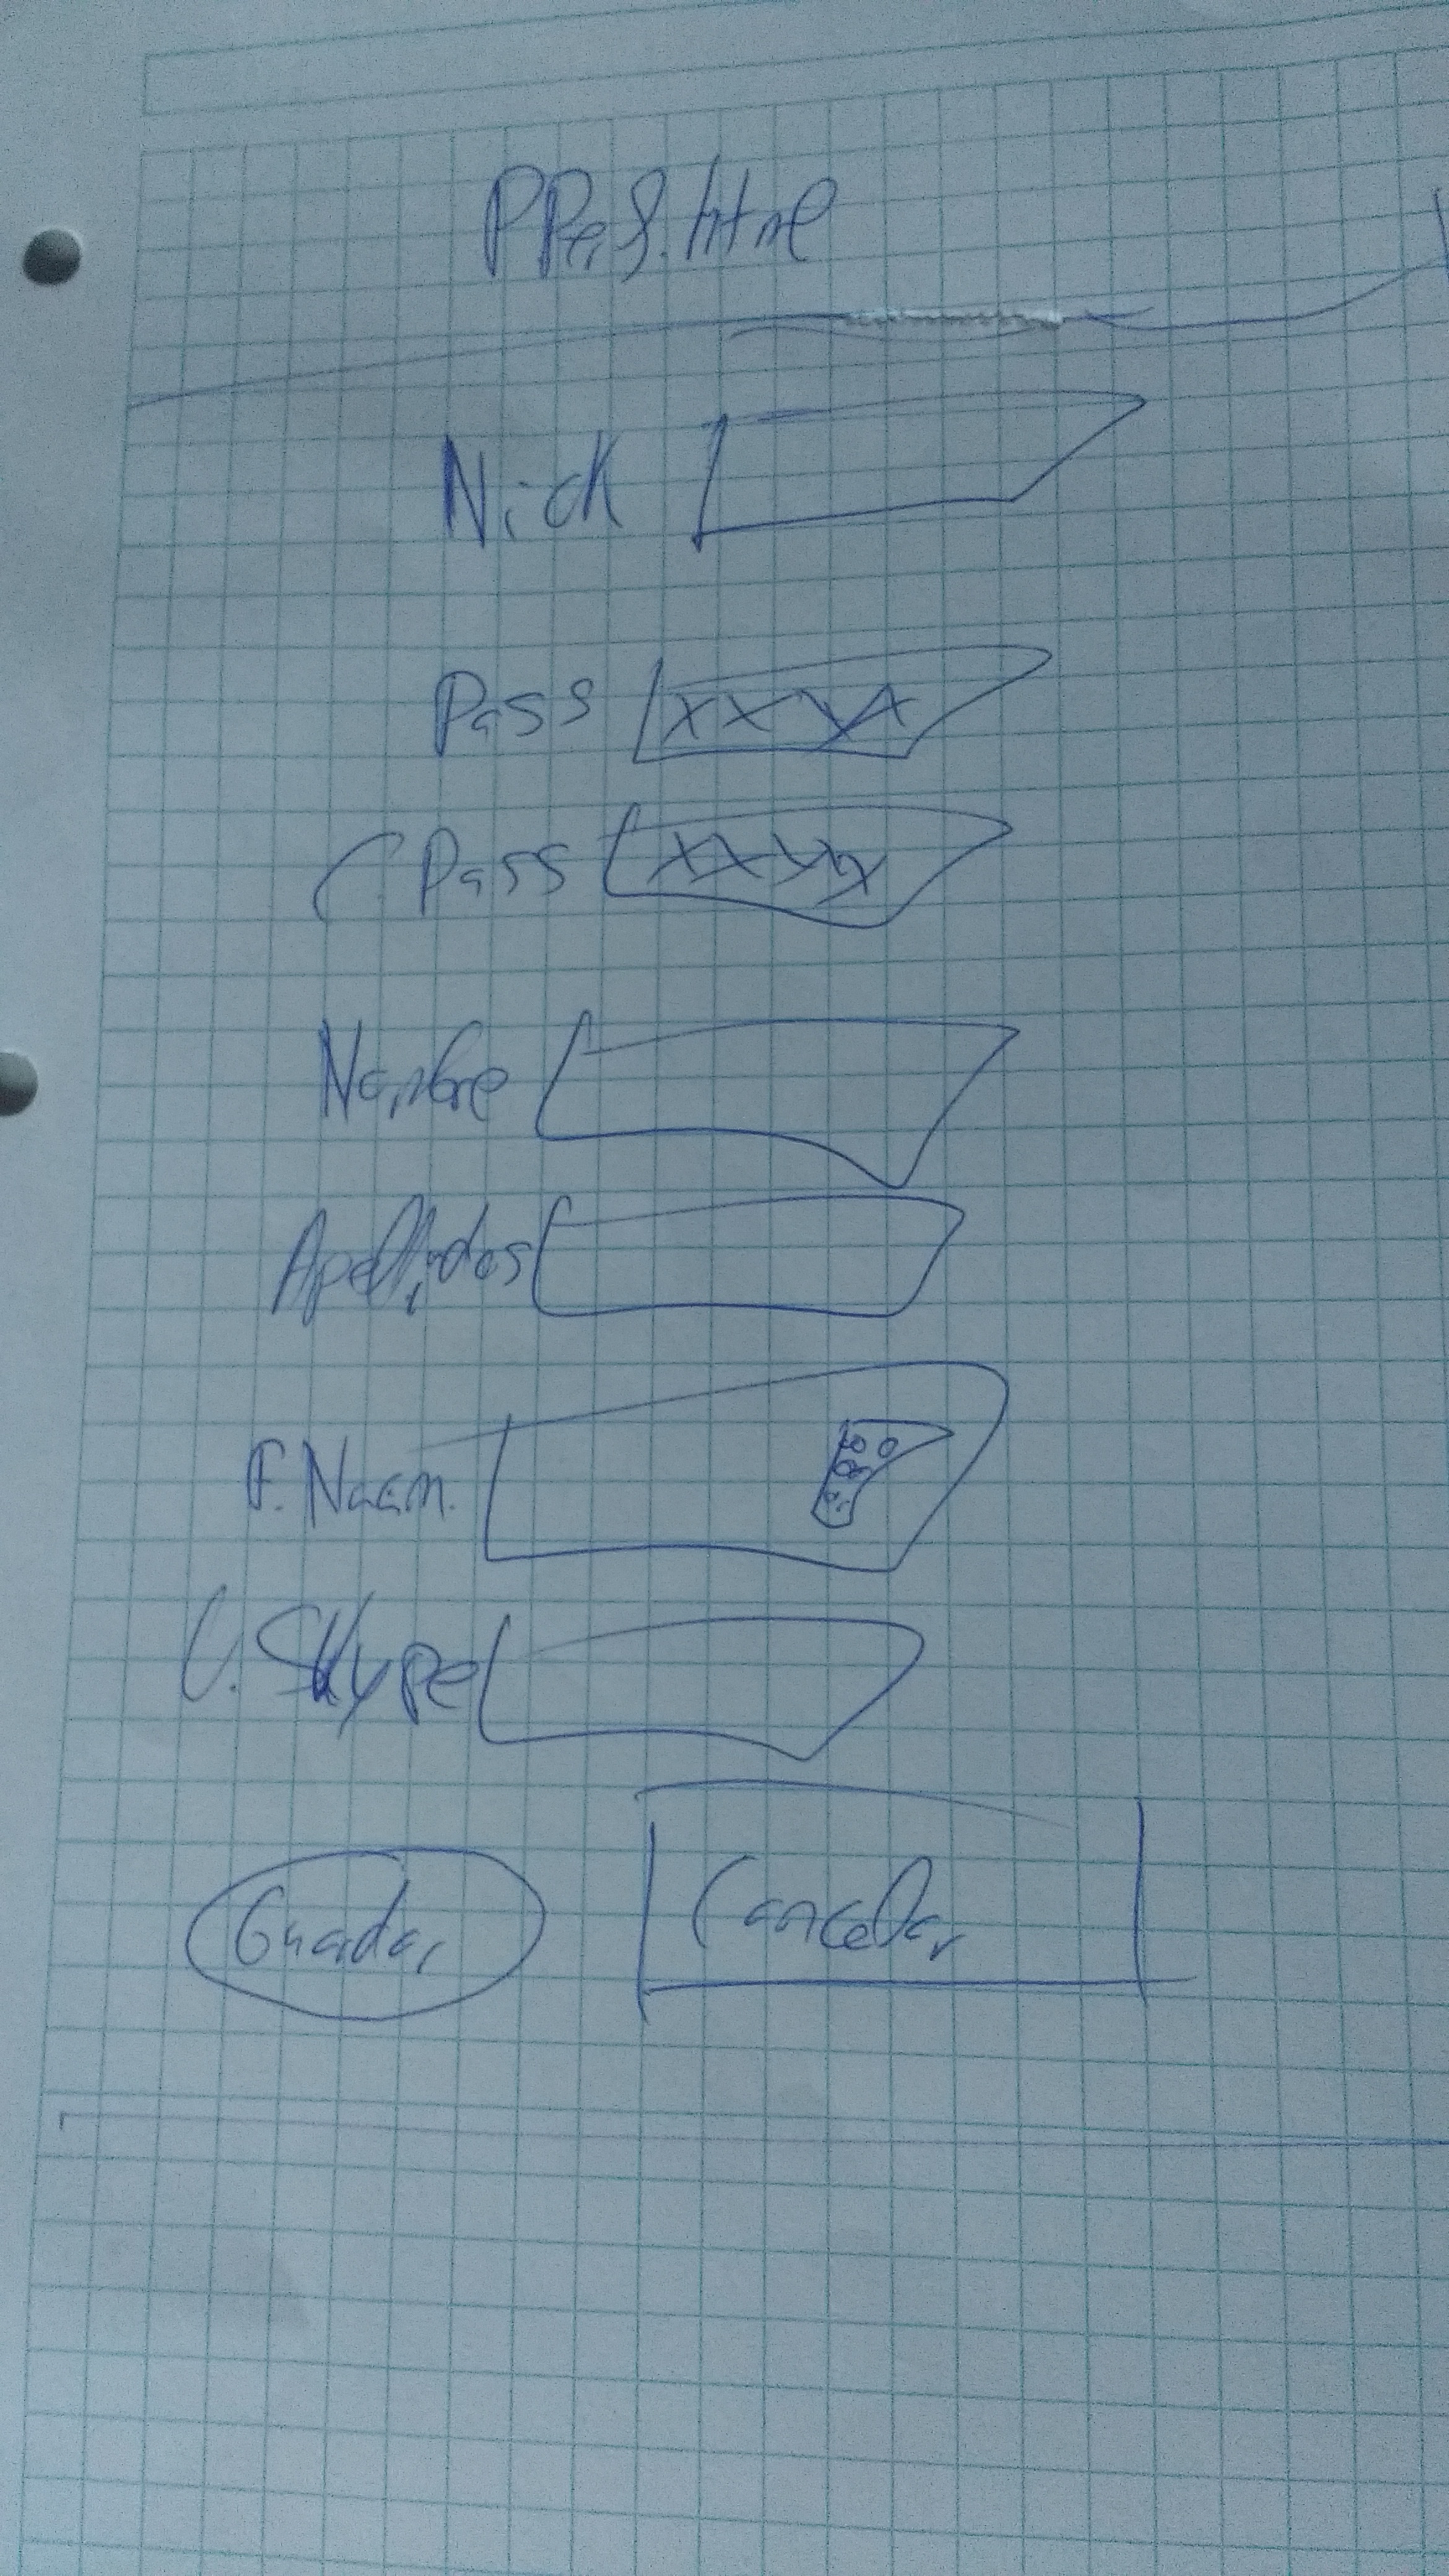 PPerf.html
Nick
Pass XXXX
C.Pass XXXXX
Nombre
Apellidos
F. Nacim.
U. Skype
Guardar Cancelar